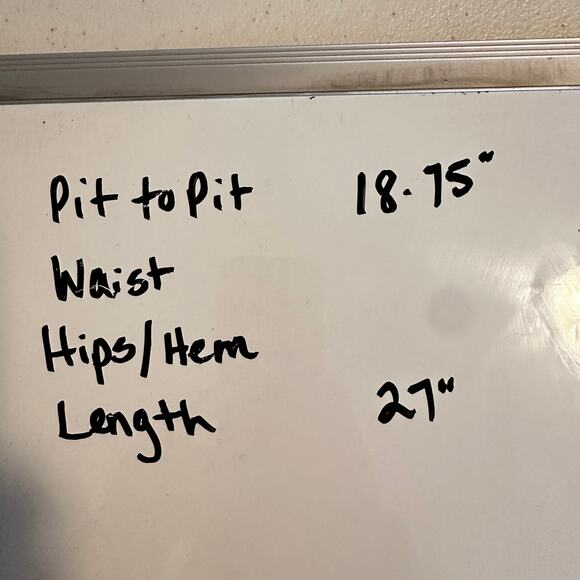 Pit to Pit 18.75"
Waist
Hips/Hem
Length 27"